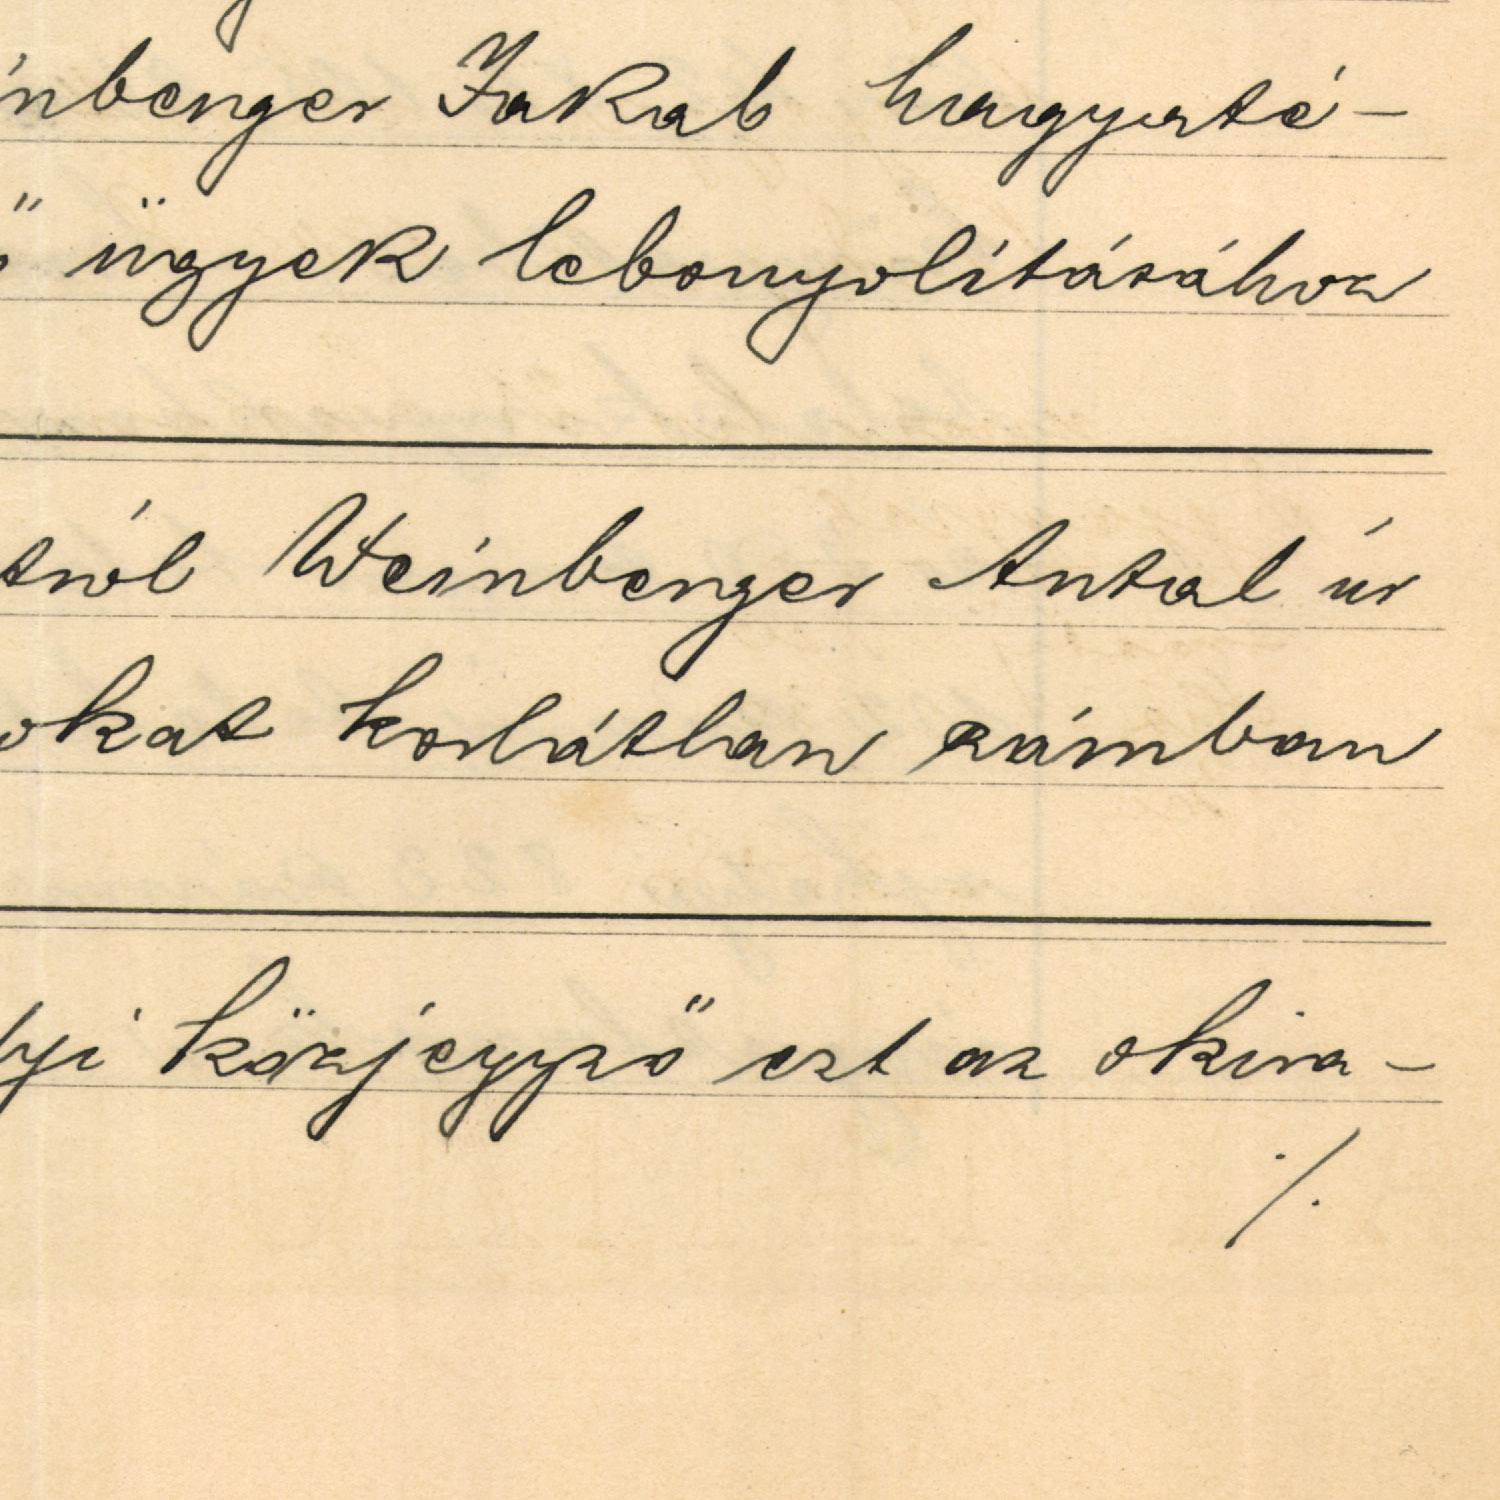 inberger Jakab hagyaté-
ő ügyek lebonyolításához
tról Weinberger Antal úr
okat korlátlan számban
lyi közjegyző ezt az okira-
./.